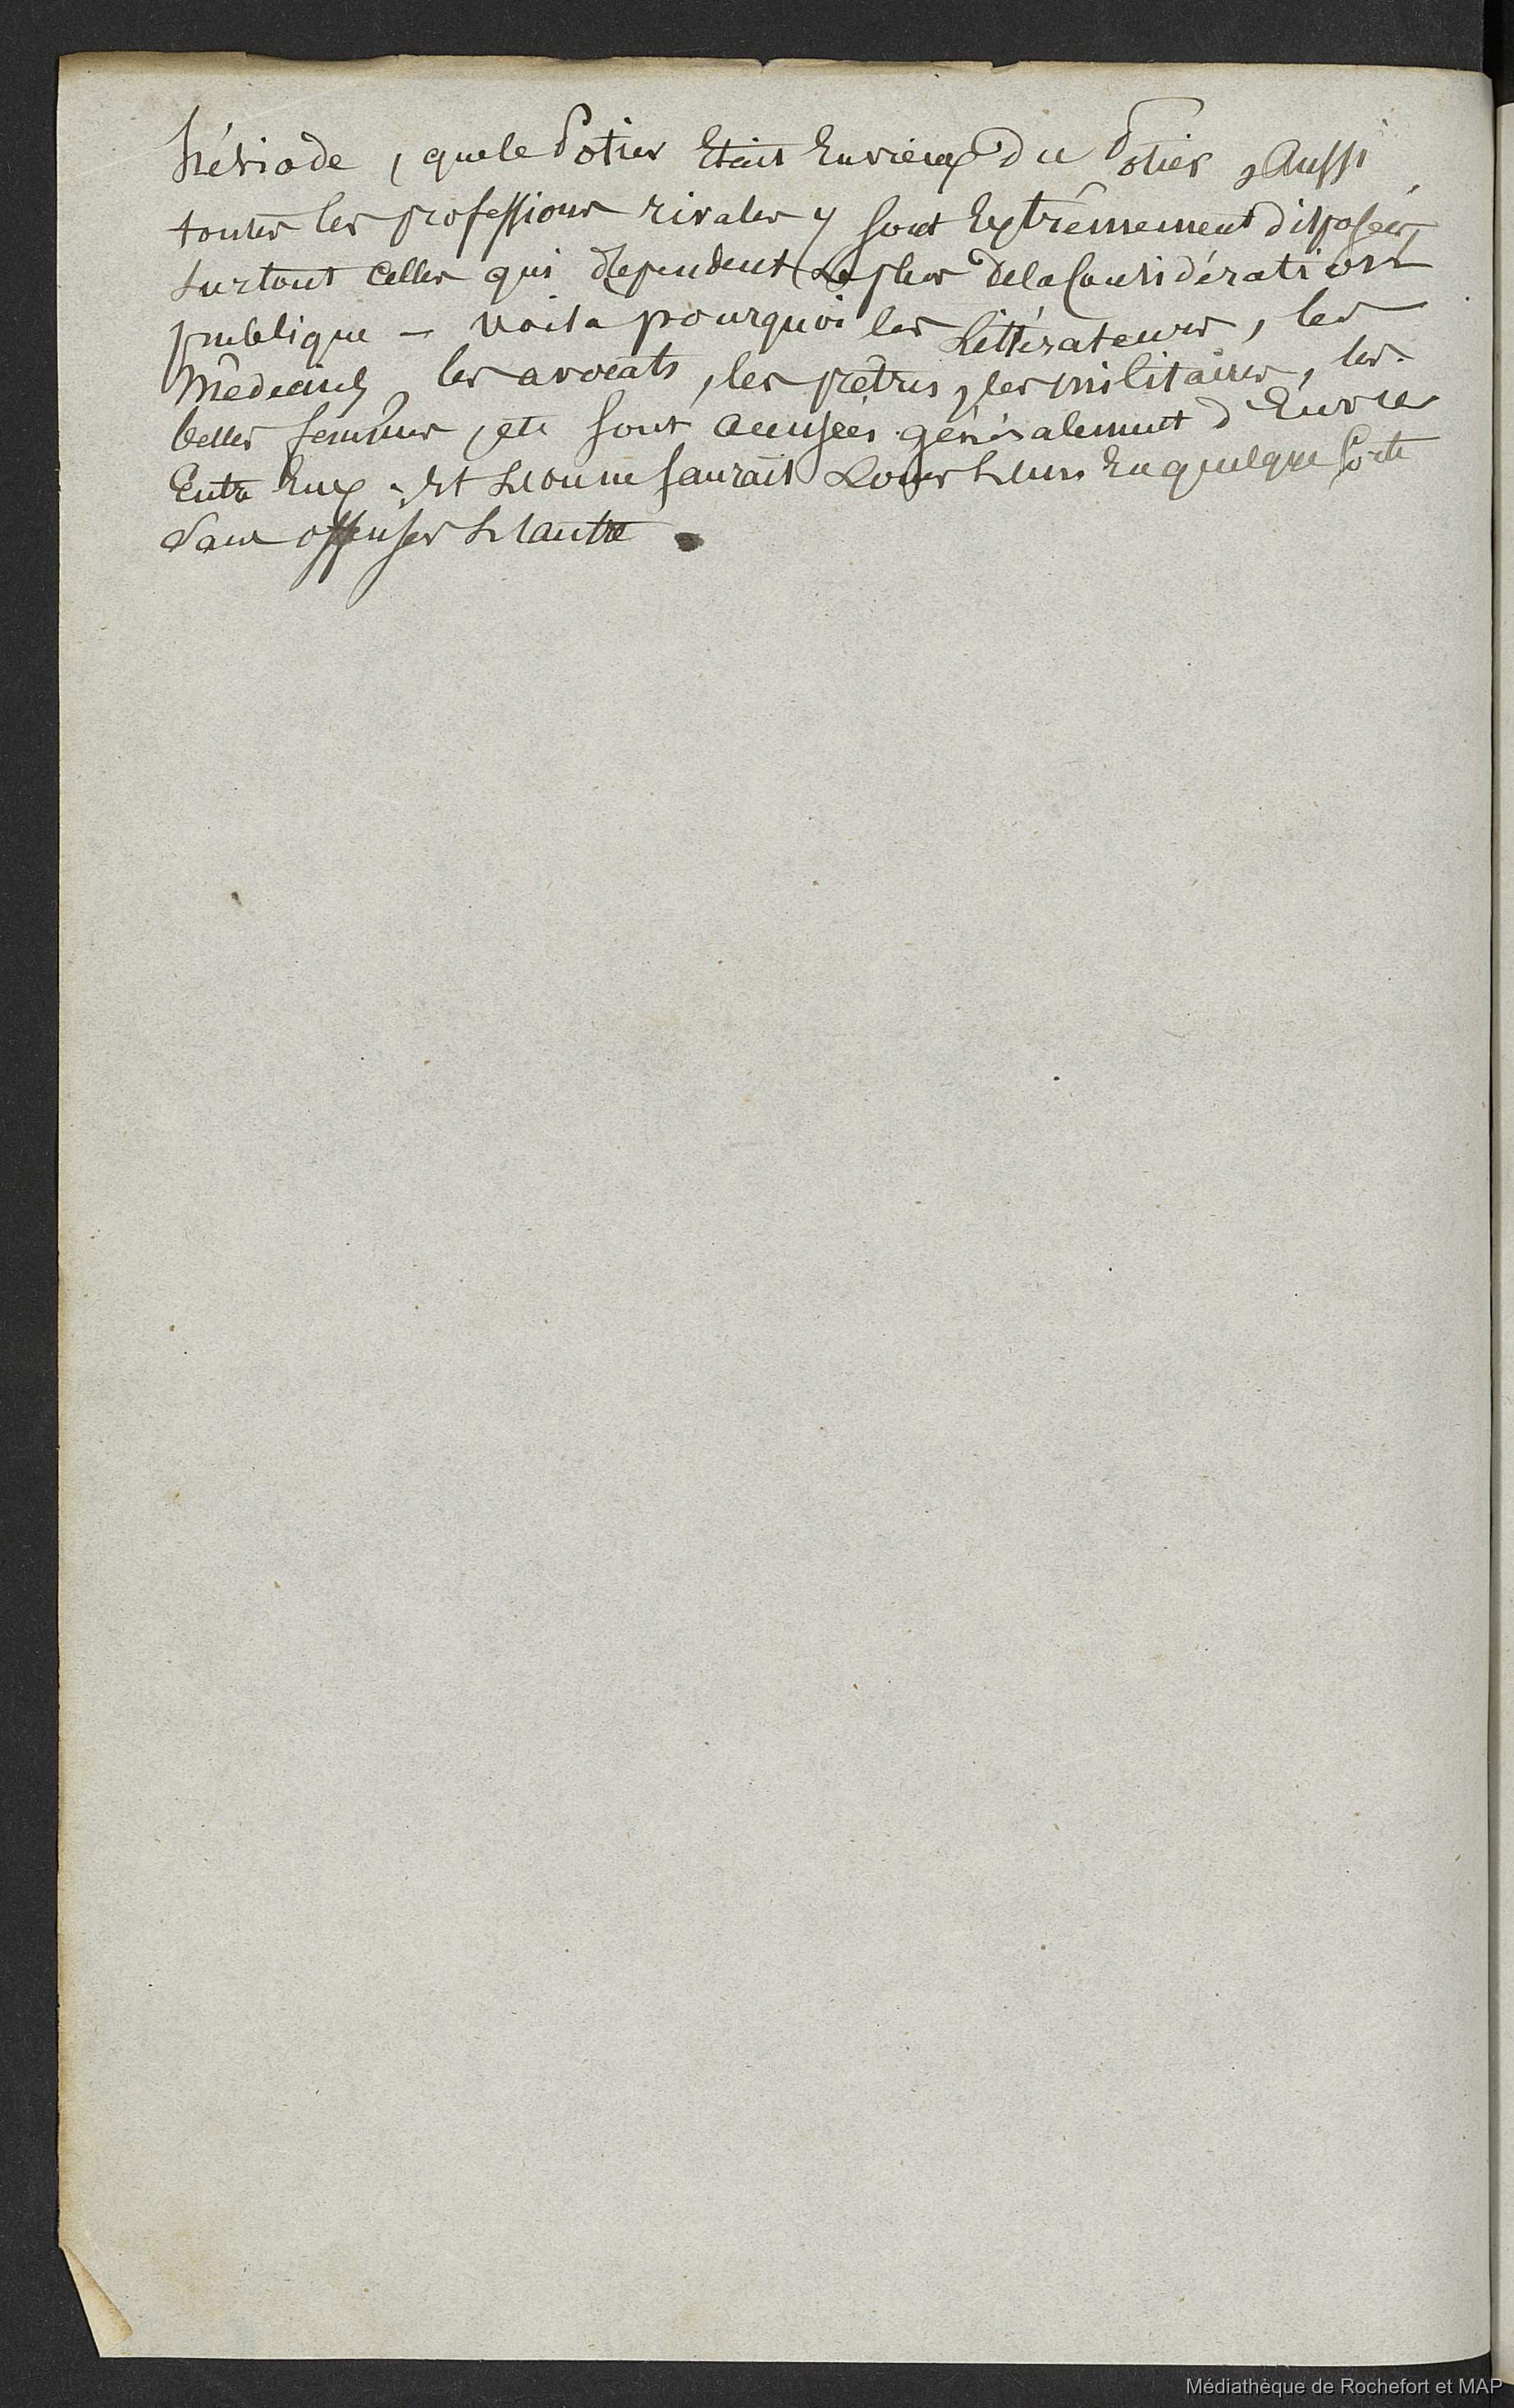 hésiode, que le Potier Etait Envieux du Potier, Aussi
toutes les professions rivales y sont Extrêmement disposées,
surtout celles qui dependent Le plus de la Considération
publique — voila pourquoi les Littérateurs, les
Médecins, les avocats, les prêtres, les militaires, les
belles femmes, etc sont accusées généralement d'Envie
Entre Eux. Et L'on ne saurait Louer L'un En quelque sorte
sans offenser L'autre.
Médiathèque de Rochefort et MAP